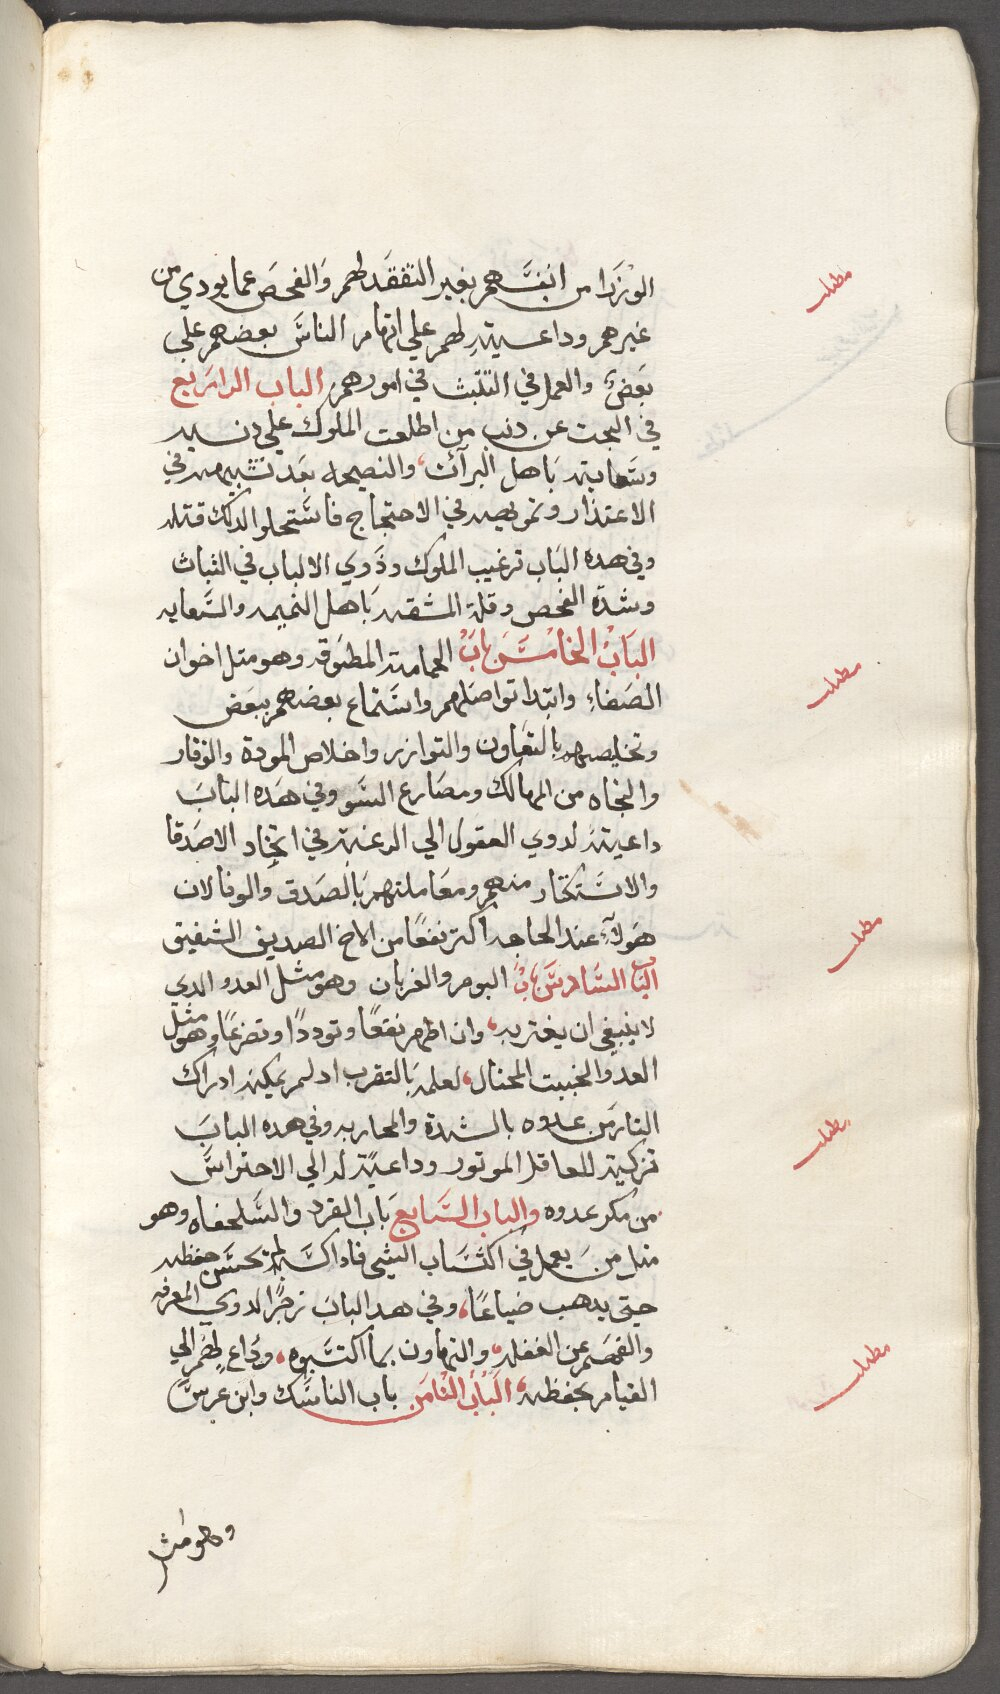 الوزرا من انفسهم بغير التفقد لهم والفحص عما يودي من
غيرهم وداعية لهم علي اتهام الناس بعضهم علي
بعض والعمل في التثبت في امورهم الباب الرابع
في البحث عن دنب من اطلعت الملوك علي دنبه
وسعايته باهل البرآت والنصيحه بعد تشبيهه في
الاعتذار وتمويهه في الاحتجاج فاستحلوا لدلك قتله
وفي هده الباب ترغيب الملوك وذوي الالباب في الثبات
وشدة الفحص وقلة الثقه باهل النميمه والسعايه
الباب الخامس باب الحمامة المطوقه وهو مثل اخوان
الصفاء وابتدا تواصلهم واستماع بعضهم ببعض
وتخليصهم بالتعاون والتوازر واخلاص المودة والوقار
والنجاه من المهالك ومصارع السو وفي هده الباب
داعية لدوي العقول الي الرغبة في اتخاد الاصدقا
والاستكثار منهم ومعاملتهم بالصدق والوفا لان
هولآء عند الحاجه اكتر نفعًا من الاخ الصديق الشفيق
الباب السادس باب البوم والغربان وهو مثل العدو الدي
لا ينبغي ان يغتر به وان اظهر نفعًا وتوددًا وتضرعًا وهو مثل
العدو الخبيت المحتال لعلمه بالتقرب اد لم يمكنه ادراك
التار من عدوه بالشدة والمحاربه وفي هده الباب
تزكية للعاقل الموتور وداعية له الي الاحتراس
من مكر عدوه والباب السابع باب القرد والسلحفاه وهو
مثل من يعمل في اكتساب الشي فادا كسبه لم يحسن حفظه
حتي يدهب ضياعًا وفي هدا الباب زجرًا لدوي المعرفه
والفهم عن الغفله والتهاون بما اكتسبوه وداع لهم الي
القيام بحفظه الباب الثامن باب الناسك وابن عرس
وهو مثل
مطلب
مطلب
مطلب
مطلب
مطلب